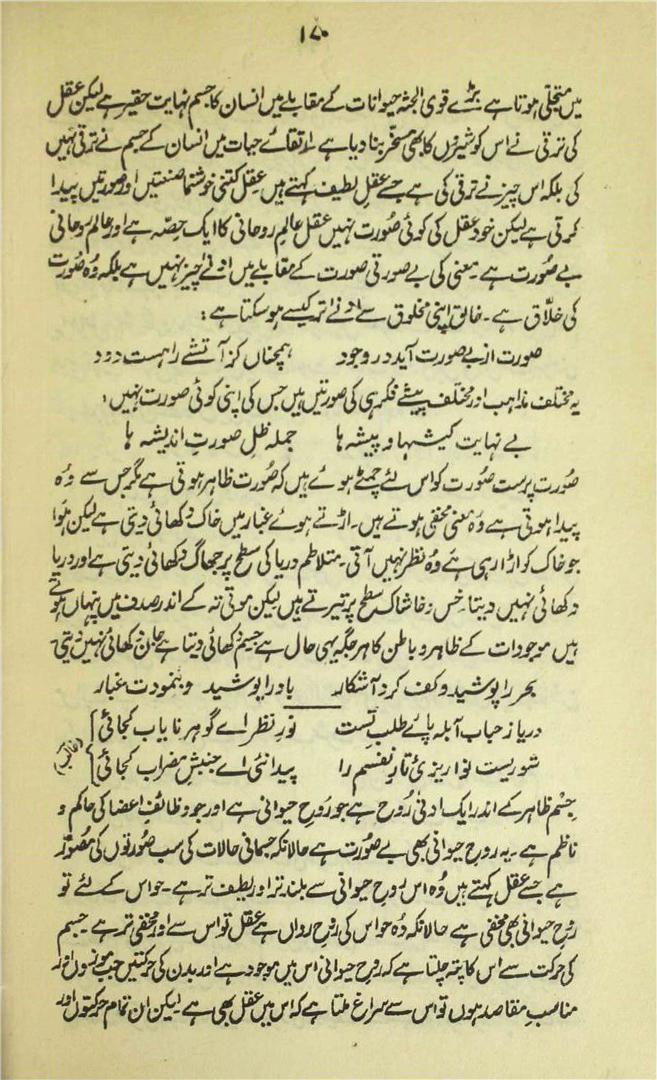 ۱۷۰
میں متجلّی ہوتا ہے بڑے قوی الجثہ حیوانات کے مقابلے میں انسان کا جسم نہایت حقیر ہے لیکن عقل
کی ترقی نے اس کو شیروں کا بھی مسخّر بنا دیا ہے ارتقائے حیات میں انسان کے جسم نے ترقی نہیں
کی بلکہ اس چیز نے ترقی کی ہے جسے عقلِ لطیف کہتے ہیں عقل کتنی خوشنما صنعتیں اور صورتیں پیدا
کرتی ہے لیکن خود عقل کی کوئی صُورت نہیں عقل عالمِ روحانی کا ایک حِصّہ ہے اور عالمِ روحانی
بے صُورت ہے۔ معنی کی بے صورتی صورت کے مقابلے میں ادنےٰ چیز نہیں ہے بلکہ وُہ صُورت
کی خلّاق ہے۔ خالق اپنی مخلوق سے ادنےٰ تر کیسے ہو سکتا ہے:
صورت از بے صورت آید در وجود ہمچناں کز آتشے زادست دود
یہ مختلف مذاہب اور مختلف پیشے فکر ہی کی صورتیں ہیں جس کی اپنی کوئی صورت نہیں:
بے نہایت کیشہا و پیشہ ہا جملہ ظلِ صورتِ اندیشہ ہا
صُورت پرست صُورت کو اس لئے چمٹے ہوئے ہیں کہ صُورت ظاہر ہوتی ہے مگر جس سے وُہ
پیدا ہوتی ہے وُہ معنی مخفی ہوتے ہیں۔ اڑتے ہوئے غبار میں خاک دکھائی دیتی ہے لیکن ہَوا
جو خاک کو اڑا رہی ہے وُہ نظر نہیں آتی۔ متلاطم دریا کی سطح پر جھاگ دکھائی دیتی ہے اور دریا
دکھائی نہیں دیتا۔ خس و خاشاک سطح پر تیرتے ہیں لیکن موتی تہ کے اندر صدف میں پنہاں ہوتے
ہیں موجودات کے ظاہر و باطن کا ہر جگہ یہی حال ہے جسم دکھائی دیتا ہے جان دکھائی نہیں دیتی۔
بحر را پوشید و کف کرد آشکار باد را پوشید و بنمودت غبار
دریا ز حباب آبلہ پائے طلبِ تست نورِ نظر اے گوہرِ نایاب کجائی
شوریست نوا ریزیٔ تارِ نفسم را پیدا نئی اے جنبشِ مضراب کجائی (غالب)
جسمِ ظاہر کے اندر ایک ادنیٰ رُوح ہے جو رُوحِ حیوانی ہے اور جو وظائفِ اعضا کی حاکم و
ناظم ہے۔ یہ روحِ حیوانی بھی بے صُورت ہے حالانکہ جسمانی حالات کی سب صُورتوں کی مصوّر
ہے جسے عقل کہتے ہیں وُہ اس روحِ حیوانی سے بلند تر اور لطیف تر ہے۔ حواس کے لئے تو
رُوحِ حیوانی بھی مخفی ہے حالانکہ وُہ حواس کی رُوحِ رواں ہے عقل تو اس سے اور مخفی تر ہے۔ جسم
کی حرکت سے اس کا پتہ چلتا ہے کہ روحِ حیوانی اس میں موجود ہے اور بدن کی حرکتیں جب موزوں اور
مناسبِ مقاصد ہوں تو اس سے سراغ ملتا ہے کہ اس میں عقل بھی ہے لیکن ان تمام حرکتوں اور